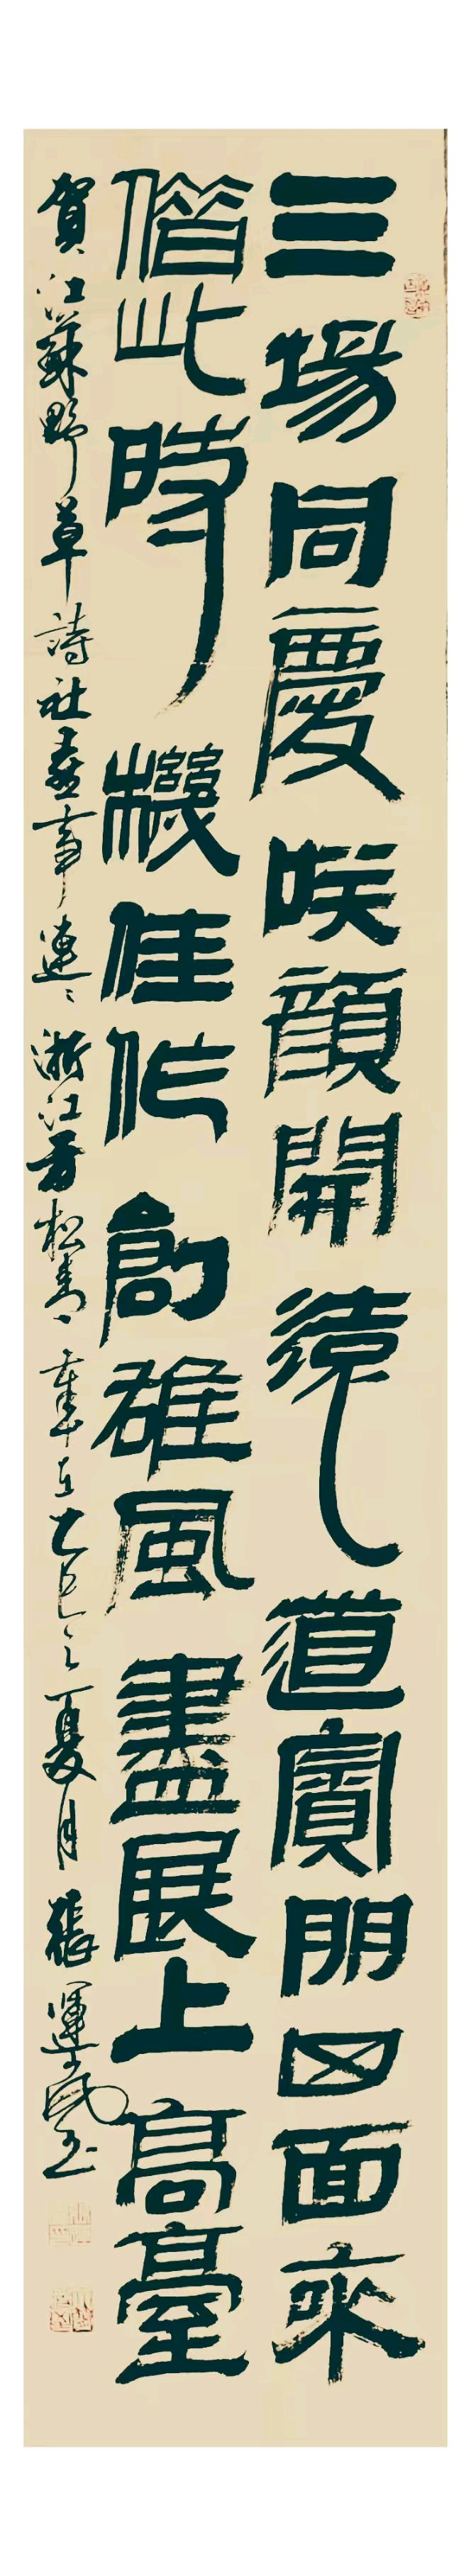 三場同慶咲顏開遠道賓朋四面來
借此時機佳作創雄風盡展上高臺
賀江蘇野草詩社喜事連連浙江 松青 章 乙巳之夏月張運民書